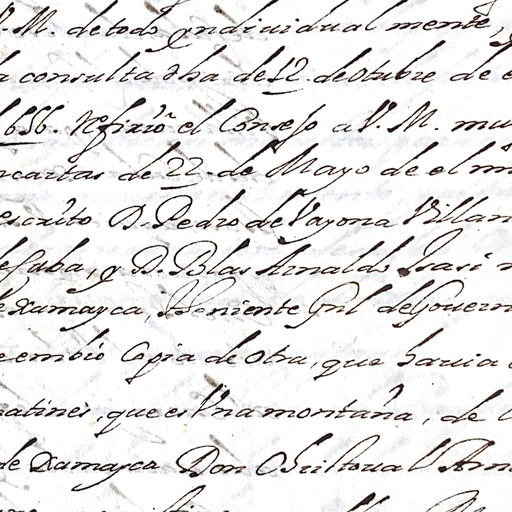 V. M. de todo yndiuidual mente,
consulta dha de 12 de otubre de e
1656. refirió el Consejo a V. M. mu
ncartas de 22 de Mayo de el mi
escrito D. Pedro de Vayona Villan
de Cuba, y D. Blas Arnaldo Isasi
de Xamayca, Theniente Gnl de Gouern
embió Copia de otra, que hauia
matines, que es Vna montaña, de
de Xamayca Don Christoual Arn